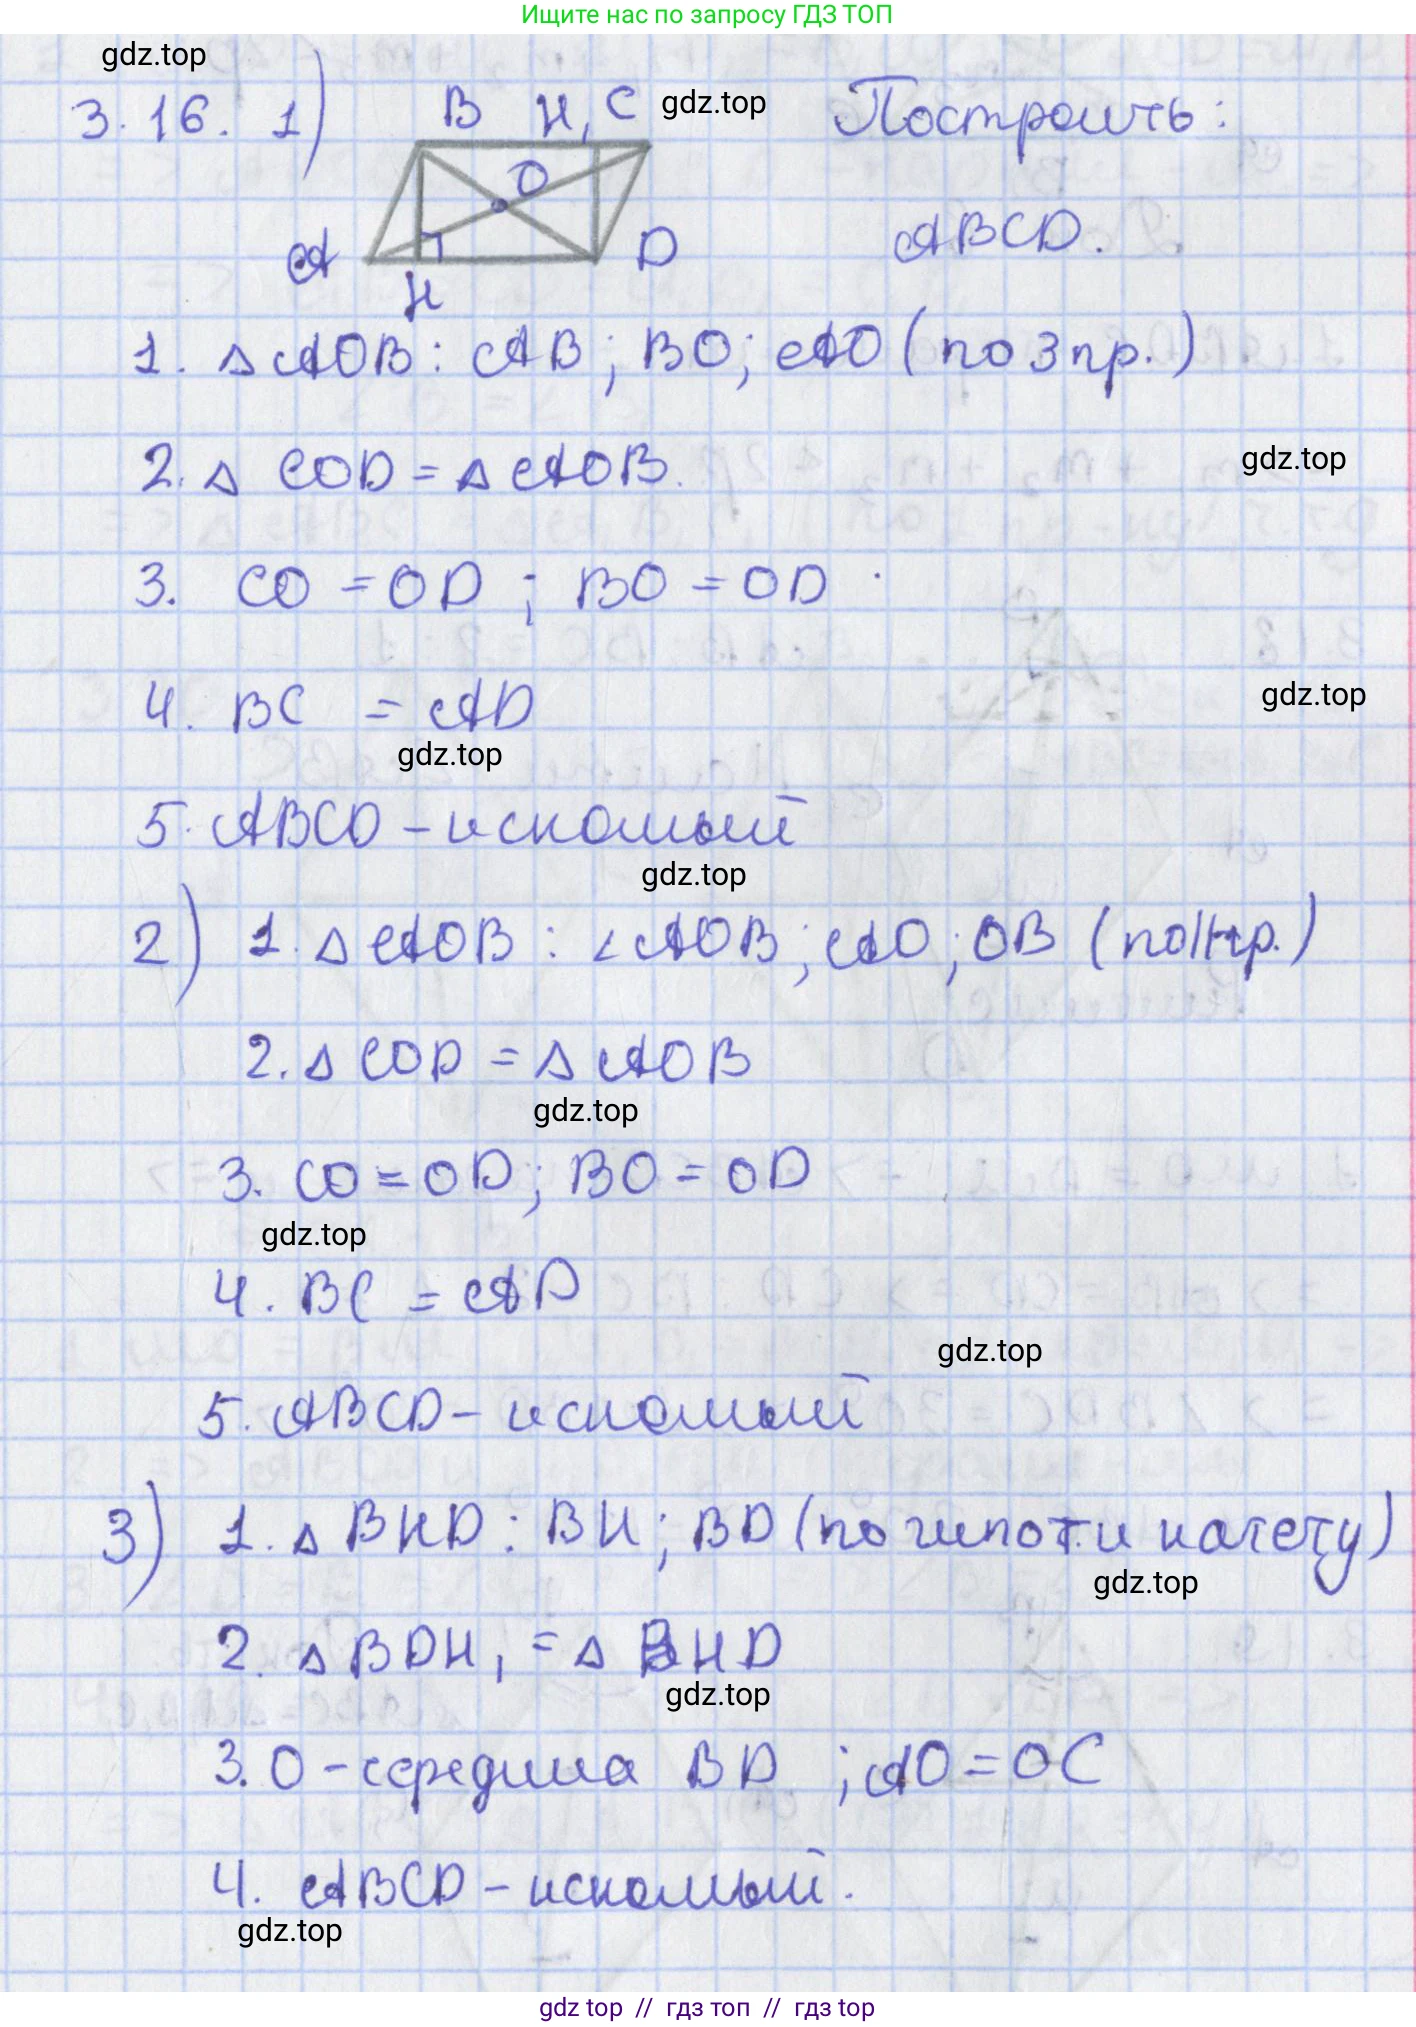 Ищите нас по запросу ГДЗ ТОП
gdz.top
3.16. 1) B H₁ C gdz.top Построить:
O
A D ABCD.
H
1. △ AOB: AB; BO; AO (по 3 пр.)
2. △ COD = △ AOB.
gdz.top
3. CO = OD; BO = OD.
gdz.top
4. BC = AD
gdz.top
5. ABCD – искомый
gdz.top
2) 1. △ AOB: ∠AOB; AO; OB (по 1 пр.)
2. △ COD = △ AOB
gdz.top
3. CO = OD; BO = OD
gdz.top
4. BC = AD
gdz.top
5. ABCD – искомый
3) 1. △ BHD: BH; BD (по гипот. и катету)
gdz.top
2. △ BDH₁ = △ BHD
gdz.top
3. O – середина BD; AO = OC
4. ABCD – искомый.
gdz.top
gdz top // гдз топ // гдз top